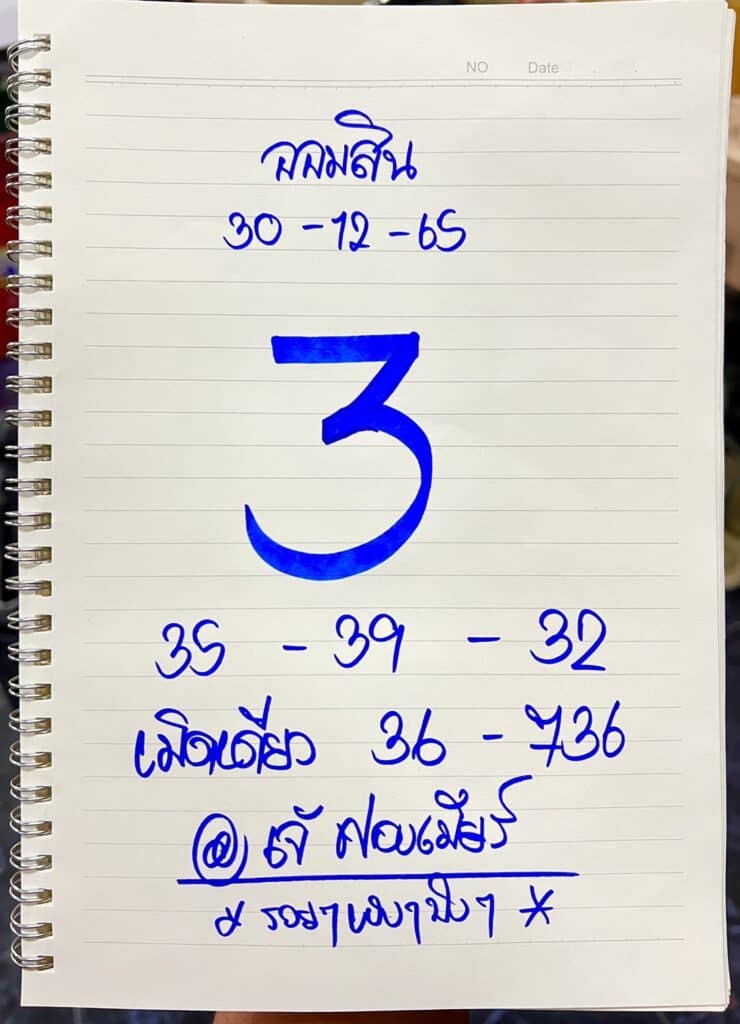 NO Date
ออมสิน
30 - 12 - 65
3
35 - 39 - 32
เม็ดเดียว 36 - 736
@ เจ๊ ฝอยเมียร์
* รวยๆ เฮงๆ ปังๆ *